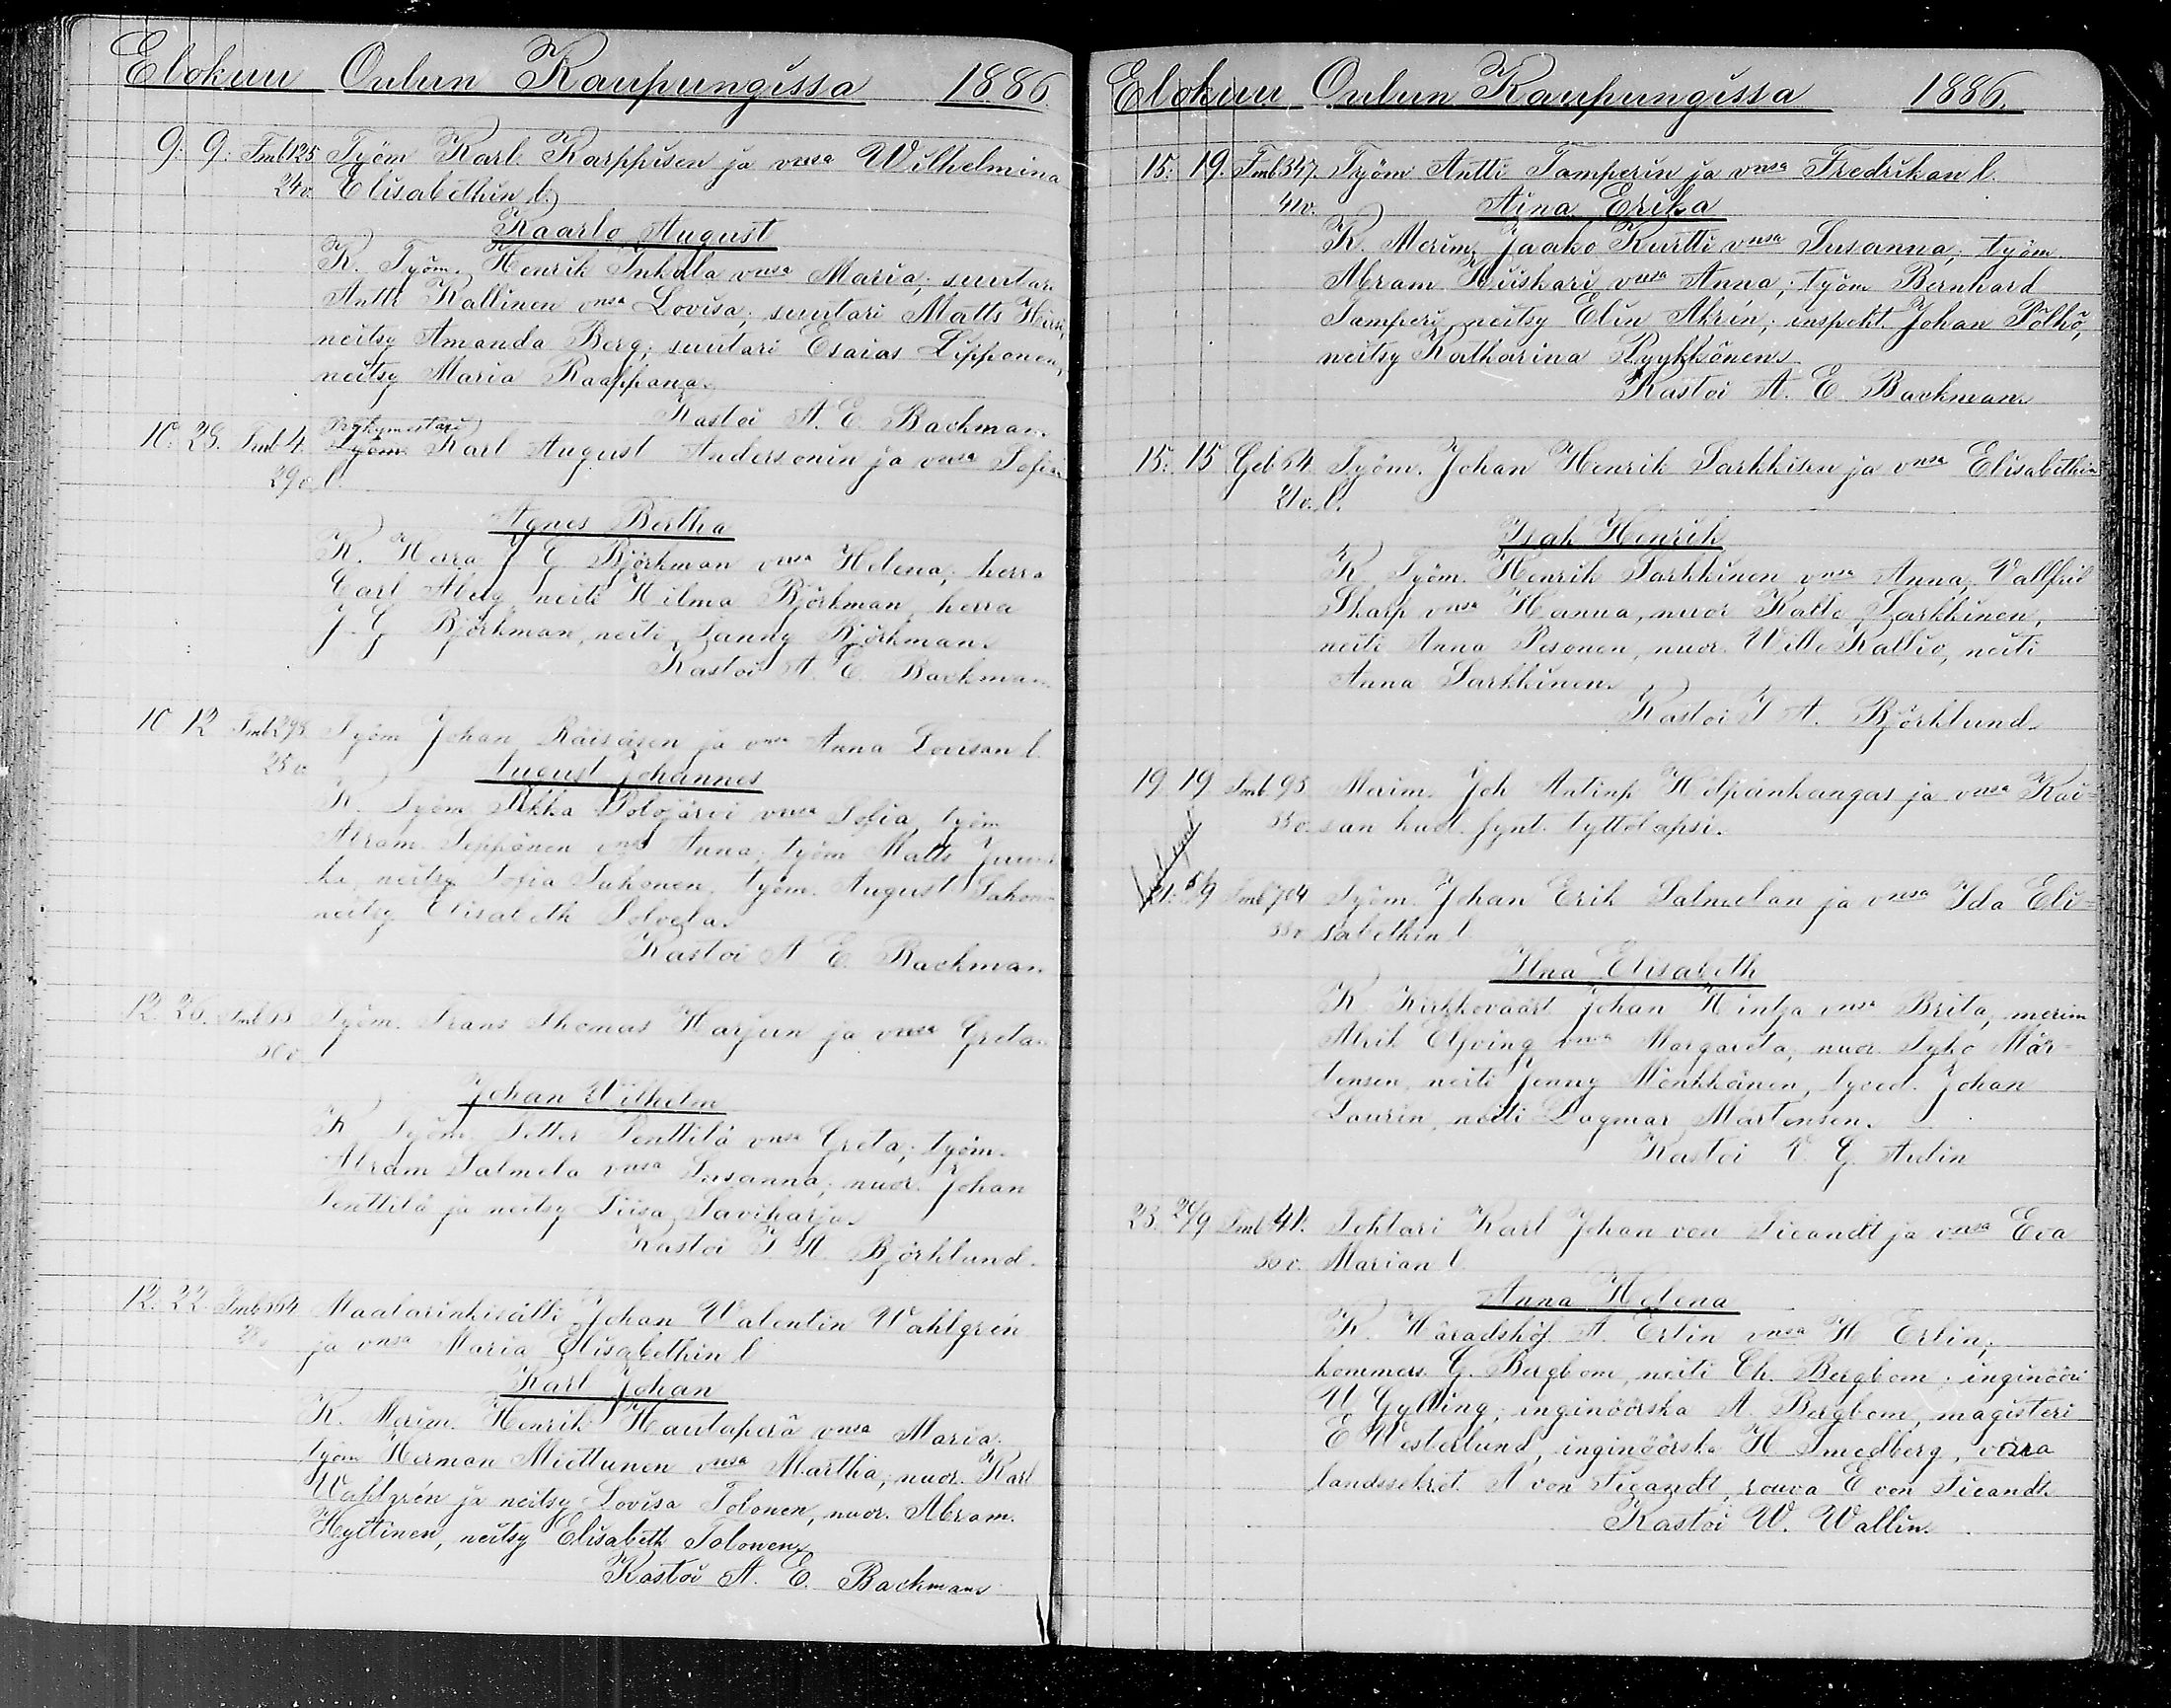 Elokuu Oulun Kaupungissa 1886.
9. 9. Tmb 125 Työm Karl Karppisen ja vmsa Wilhelmina
24 v. Elisabethin l.
Kaarlo August
K. Työm. Henrik Inkala vmsa Maria; suutari
Antti Kallinen vmsa Lovisa; suutari Matts Hirsi,
neitsy Amanda Berg; suutari Esaias Lipponen,
neitsy Maria Raappana.
Kastoi A. E. Backman.
10. 29. Tmb 4. Työm. Karl August Andersonin ja vmsa Sofia
29 v. l.
Agnes Bertha
K. Herra J E Björkman vmsa Helena; herra
Carl Aberg neiti Hilma Björkman, herra
J. G Björkman, neiti Fanny Björkman.
Kastoi A. E. Backman.
10 12 Tmb 298 Työm Johan Räisäsen ja vmsa Anna Lovisan l.
25 v.
August Johannes
K. Työm Pekka Polojärvi vmsa Sofia, työm
Abram Seppänen vmsa Anna; työm Matts
neitsy Sofia Sahonen, työm. August Sahonen
neitsy Elisabeth
Kastoi A E. Backman.
12. 26. Työm. Frans Thomas Harjun ja vmsa Greta
30 v. l
Johan Wilhelm
K. Työm. Petter Penttilä vmsa Greta; työm.
Abram Salmela vmsa Susanna; nuor. Johan
Penttilä ja neitsy Liisa Saviharju.
Kastoi A. Björklund.
12. 22. Tmb 564 Maalarinkisälli Johan Walentin Wahlgrén
ja vmsa Maria Elisabethin l
Karl Johan
K. Merim. Henrik Hautaperä vmsa Maria;
työm Herman Miettunen vmsa Martha; nuor. Karl
Wahlgrén ja neitsy Lovisa Tolonen, nuor. Abram.
Hyitinen, neitsy Elisabeth Tolonen.
Kastoi A. E. Backman
Elokuu Oulun Kaupungissa 1886.
15. 19. Tmb 347. Työm Antti Tamperin ja vmsa Fredrikan l.
41 v. Aina Erika
K. Merim. Jaako Kurtti vmsa Susanna; työm.
Abram Kuiskari vmsa Anna; työm Bernhard
Tamperi, neitsy Elin Akrin; inspekt. Johan Pölhö,
neitsy Katharina Pyykkönen.
Kastoi A. E. Backman.
15. 15 Geb 64. Työm. Johan Henrik Sarkkisen ja vmsa Elisabethin
21 v. l.
Isak Henrik
K Työm. Henrik Sarkkinen vmsa Anna, Vallfrid
Skarp vmsa Hanna, nuor Kalle Sarkkinen,
neiti Anna Pesonen, nuor. Wille Kallio, neiti
Anna Sarkkinen.
Kastoi A. Björklund.
19 19 Tmb 95 Merim. Joh Antinp Hilpinkangas ja vmsa Kai=
35 v. san kuol. synt. tyttölapsi.
21. 5/9 Tmb 704 Työm. Johan Erik Salmelan ja vmsa Ida Eli=
33 v. sabethin l
Ilna Elisabeth
K. Kirkkoväärt Johan Hintza vmsa Brita, merim
Alrik Elfving vmsa Margareta, nuor. Tyko Mär=
tensen, neiti Jenny Mönkkönen, Johan
Laurin, neiti Dagmar Mårtensen.
Kastoi V. G. Aulin
23. 20/9 Tmb 41. Tohtari Karl Johan von Ficandt ja vmsa Eva
36 v. Marian l
Anna Helena
K. Häradshöf. A Erlin vmsa H Erlin;
kommers G. Bergbom, neiti Ch. Bergbom; inginööri
W Gylling; inginöörska A. Bergbom, magisteri
E Westerlund, inginöörska H Smedberg, vara
landssekret. A von Ficandt, rouva E von Ficandt.
Kastoi W. Wallin.